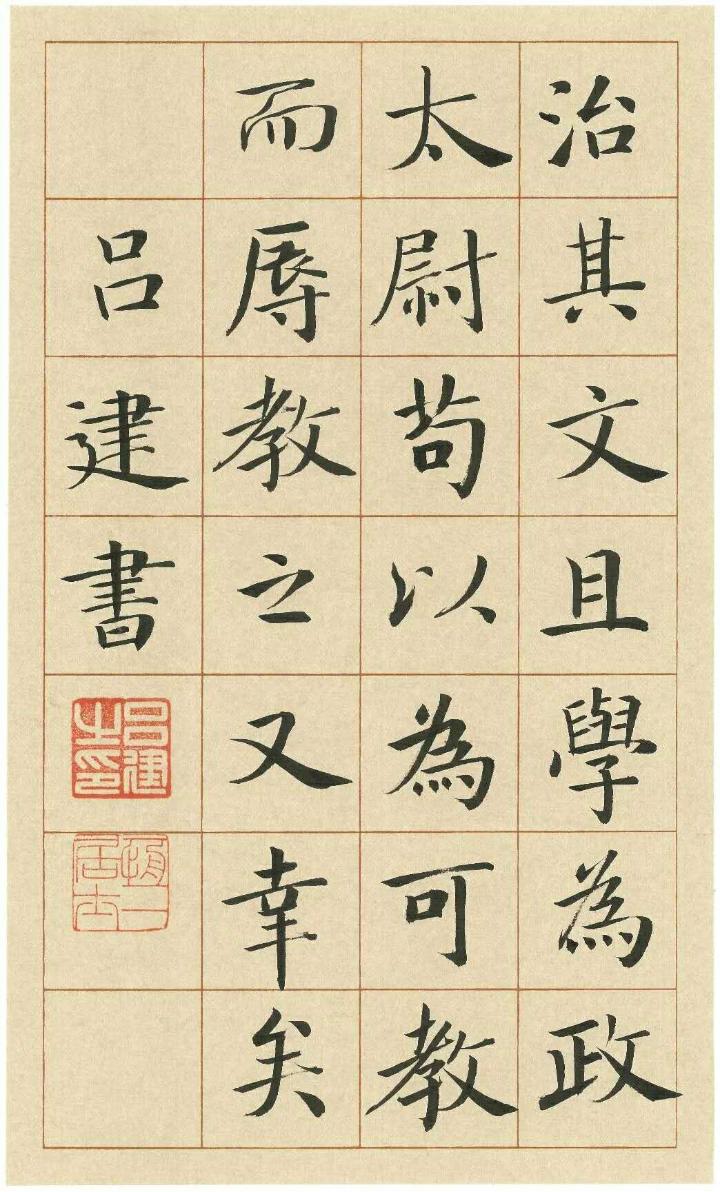 治其文且學為政
太尉苟以為可教
而辱教之又幸矣
吕建書
吕建之印
恒一居士